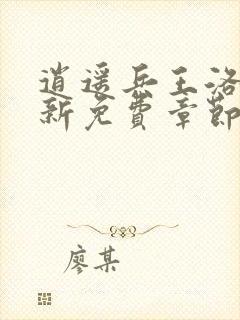 逍遥兵王洛
新免費章節
廖某